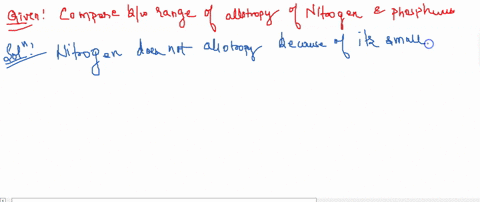 Given! Compare b/w range of allotropy of Nitrogen & phosphorus
Solⁿ, Nitrogen does not allotropy because of its small